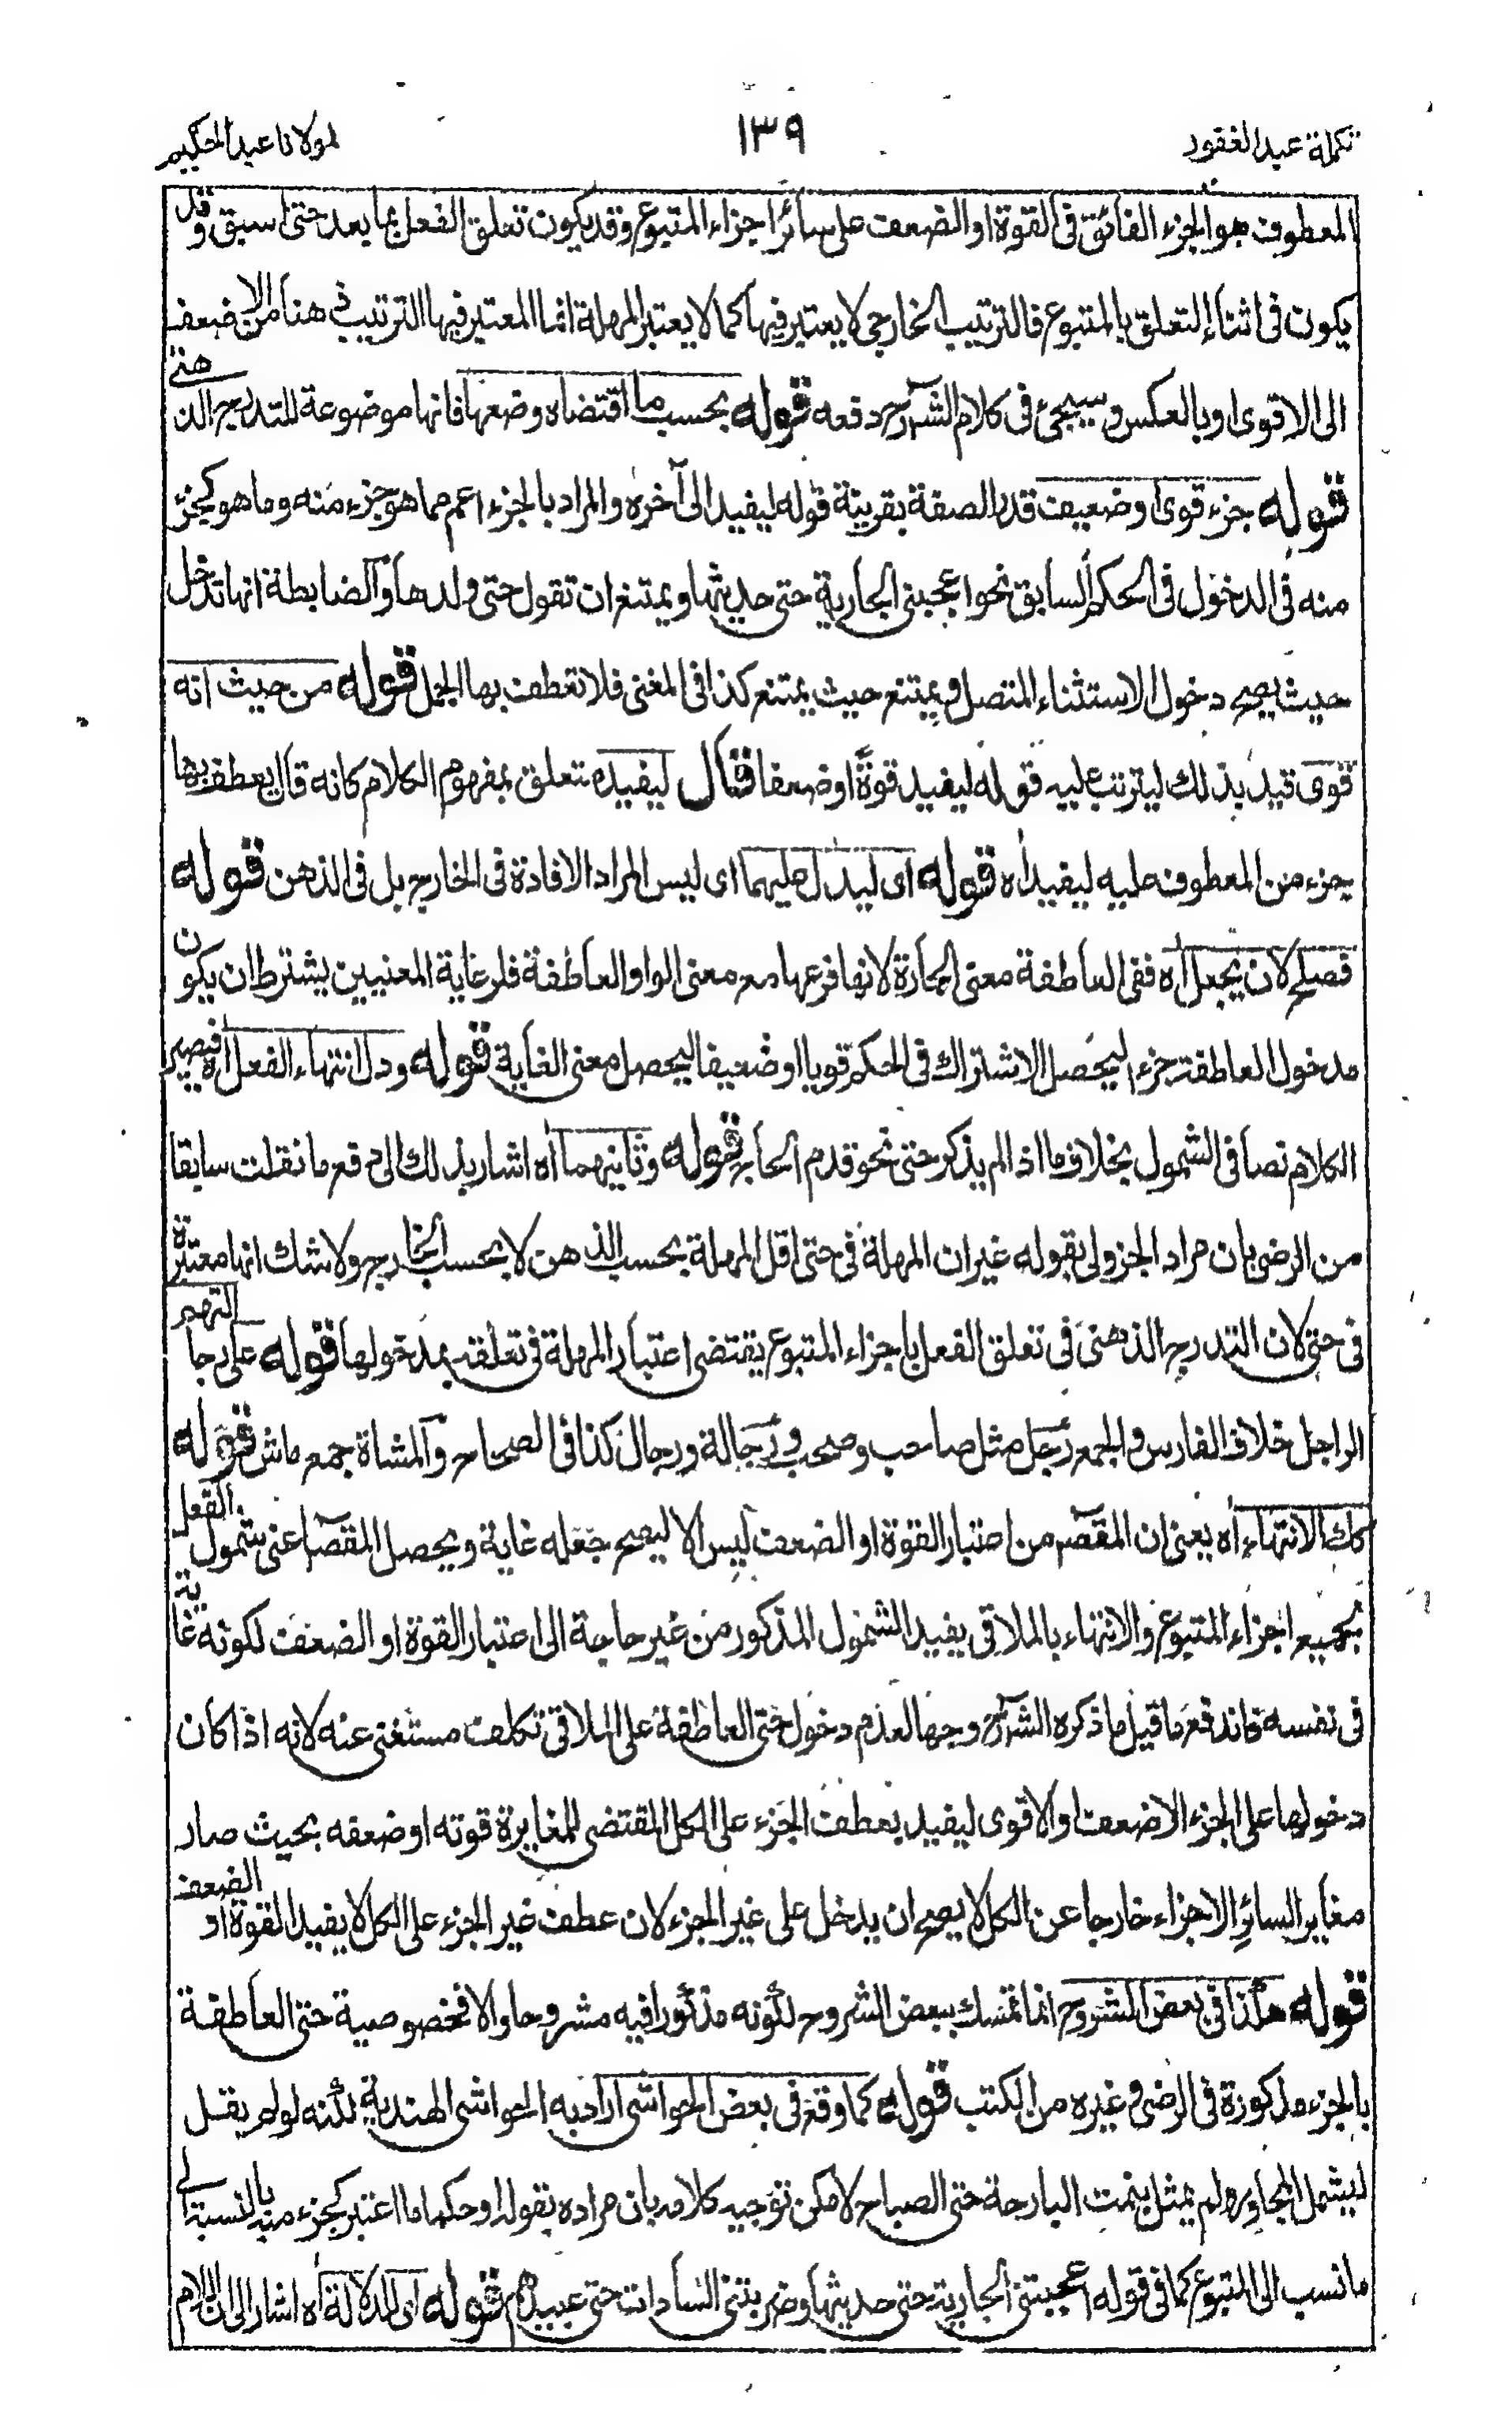 تكملة عبد الغفور
١٣٩
لمولانا عبد الحكيم
المعطوف هو الجزء الفائق فى القوة او الضعف على سائر اجزاء المتبوع وقد يكون تعلق الفعل بما بعد حتى اسبق وقد
يكون فى اثناء التعلق بالمتبوع فالترتيب الخارجى لا يعتبر فيها كما لا يعتبر المهلة انما المعتبر فيها الترتيب ذهنا من الاضعف
الى الاقوى او بالعكس وسيجئ فى كلام الشرح دفعه قوله بحسب ما اقتضاه وضعها فانها موضوعة للتدريج الذهنى
قوله جزء قوى او ضعيف قدر الصفة بقرينة قوله ليفيد الى آخره والمراد بالجزء اعم مما هو جزء منه وما هو كجزء
منه فى الدخول فى الحكم السابق نحو اعجبنى الجارية حتى حديثها ويمتنع ان تقول حتى ولدها والضابطة انها تدخل
حيث يصح دخول الاستثناء المتصل ويمتنع حيث يمتنع كذا فى المغنى فلا تعطف بها الجمل قوله من حيث انه
قوى قيد بذلك ليترتب عليه قوله ليفيد قوة او ضعفا قال ليفيده متعلق بمفهوم الكلام كانه قال يعطف بها
جزء من المعطوف عليه ليفيد اه قوله اى ليدل عليهما اى ليس المراد الافادة فى الخارج بل فى الذهن قوله
فصلح لان يجعل اه ففى العاطفة معنى الجارة لانها فرعها مع معنى الواو العاطفة فلرعاية المعنيين يشترط ان يكون
مدخول العاطفة جزء ليحصل الاشتراك فى الحكم قويا او ضعيفا ليحصل معنى الغاية قوله ودل انتهاء الفعل اه فيصير
الكلام نصا فى الشمول بخلاف ما اذا لم يذكر حتى نحو قدم الحاج قوله وثانيهما اه اشار بذلك الى دفع ما نقلت سابقا
من الرضى بان مراد الجزولى بقوله غير ان المهلة فى حتى اقل المهلة بحسب الذهن لا بحسب الخارج ولا شك انها معتبرة
فى حتى لان التدريج الذهنى فى تعلق الفعل باجزاء المتبوع يقتضى اعتبار المهلة فى تعلقه بمدخولها قوله على رجالتهم
الراجل خلاف الفارس والجمع رجل مثل صاحب وصحب ورجالة ورجال كذا فى الصحاح والمشاة جمع ماش قوله
كك الانتهاء اه يعنى ان المقصر من اعتبار القوة او الضعف ليس الا ليصح جعله غاية ويحصل المقصر اعنى شمول الفعل
بجميع اجزاء المتبوع والانتهاء بالملاقى يفيد الشمول المذكور من غير حاجة الى اعتبار القوة او الضعف لكونه غاية
فى نفسه فاندفع ما قيل ما ذكره الشرح وجها لعدم دخول حتى العاطفة على الملاقى تكلف مستغنى عنه لانه اذا كان
دخولها على الجزء الاضعف او الاقوى ليفيد بعطف الجزء على الكل المقتضى للمغايرة قوته او ضعفه بحيث صار
مغايرا لسائر الاجزاء خارجا عن الكل لا يصح ان يدخل على غير الجزء لان عطف غير الجزء على الكل لا يفيد القوة او الضعف
قوله هكذا فى بعض الشروح انما تمسك ببعض الشروح لكونه مذكورا فيه مشروحا والا فخصوصية حتى العاطفة
بالجزء مذكورة فى الرضى وغيره من الكتب قوله كما وقع فى بعض الحواشى اراد به الحواشى الهندية لكنه لو لم يقل
ليشمل المجاور ولم يمثل بنمت البارحة حتى الصباح لامكن توجيه كلامه بان مراده بقوله او حكما ما اعتبر كجزء منه بالنسبة الى
ما نسب الى المتبوع كما فى قوله اعجبتنى الجارية حتى حديثها وضربتنى السادات حتى عبيدهم قوله اى الدلالة اه اشار الى ان اللام